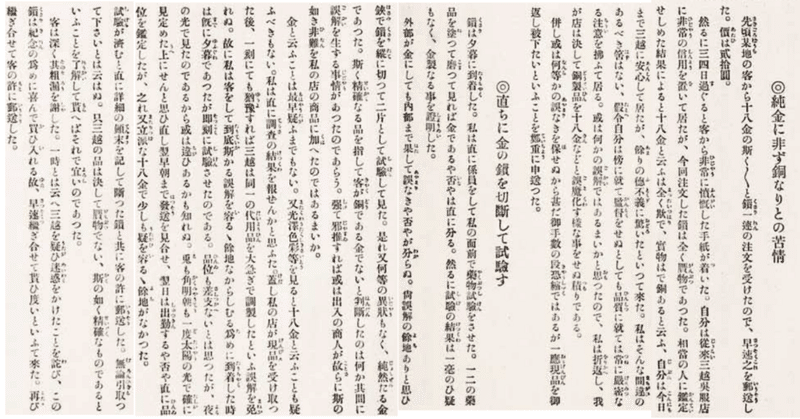 ◎純金に非ず銅なりとの苦情
先頃某地の客から十八金の斯く〱と鎖一連の注文を受けたので、早速之を郵送し
た。價は貳拾圓。
然るに三四日過ぐると客から非常に憤慨した手紙が着いた。自分は從來三越呉服店
に非常の信用を置いて居たが、今回注文した鎖は全く贋物であつた。相當の人に鑑定
せしめた結果によると十八金と云ふは全く欺で、實物はで銅あると云ふ、自分は今日
まで三越に安心して居たが、餘りの德不義に驚いたといつて來た。私はそんな間違の
あるべき筈はない、假令自分は傍に就て監督をせぬとしても品質に就ては常に嚴密な
る注意を拂ふて居る。或は何かの誤解ではあるまいかと思つたので、私は折返し、我
が店は決して銅製品を十八金などと誤魔化す樣な事をせぬ積りである。
併し或は何等かの誤なきを保せぬから甚だ御手數の段恐縮ではあるが一應現品を御
返し被下たいといふことを鄭重に申送つた。
◎直ちに金の鎖を切斷して試驗す
鎖は夕暮に到着した。私は直に係員をして私の面前で藥物試驗をさせた。一二の藥
品を塗つて磨つて見れば金であるや否やは直に分る。然るに試驗の結果は一毫のひ疑
もなく、金製なる事を證明した。
外部が金にしても內部まで果して誤なきや否やが分らぬ。尙誤解の餘地ありと思ひ
鋏で鎖を縱に切つて二片として試驗して見た。是れ又何等の異狀もなく、純然たる金
であつた。斯く精確なる品を指して客が銅である金でないと判斷したのは何か其間に
誤解を生ずる事情があつたのであらう。强て邪推すれば或は出入の商人が故らに斯の
如き非難を私の店の商品に加へたのではあるまいか。
金と云ふことは早や疑ふまでもない。又光澤色彩等を見ると十八金と云ふことも疑
ふべきもない。私は直に調查の結果を報ぜんかと思ふた。蓋し私の店が現品を受け取つ
た後、一刻にても猶豫すれば三越は同一の代用品を大急ぎで調製したといふ誤解を免
れぬ。故に私は客をして到底斯かる誤解を容る丶餘地なからしむる爲めに到着した時
は旣に夕暮であつたが卽刻に試驗させたのである。品位も差支ないとは思つたが、夜
の光で見たのであるから或は違ひあるかも知れぬ。兎も角明朝も一度太陽の光で確に
見定めた上にせんと思ひ直し翌早朝まで發送を見合せ、翌日は出勤するや否や直に品
位を鑑定したが、之れ又立派な十八金で少しも疑を容る丶餘地がなかつた。
試驗が濟むと直に詳細の顚末を記して斷つた鎖と共に客の許に郵送した。無論引取つ
て下さいとは云はぬ。只三越の品は決して贋物でない、斯の如く精確なものであると
いふことを了解して貰へばそれで宜いのであつた。
客は深く其粗漏を謝した。一時とは云へ三越を疑ひ迷惑をかけたことを詫び、この
鎖は紀念の爲めに喜んで買ひ入れる故、早速繼ぎ合せて貰ひ度いといふて來た。再び
繼ぎ合せて客の許に郵送した。